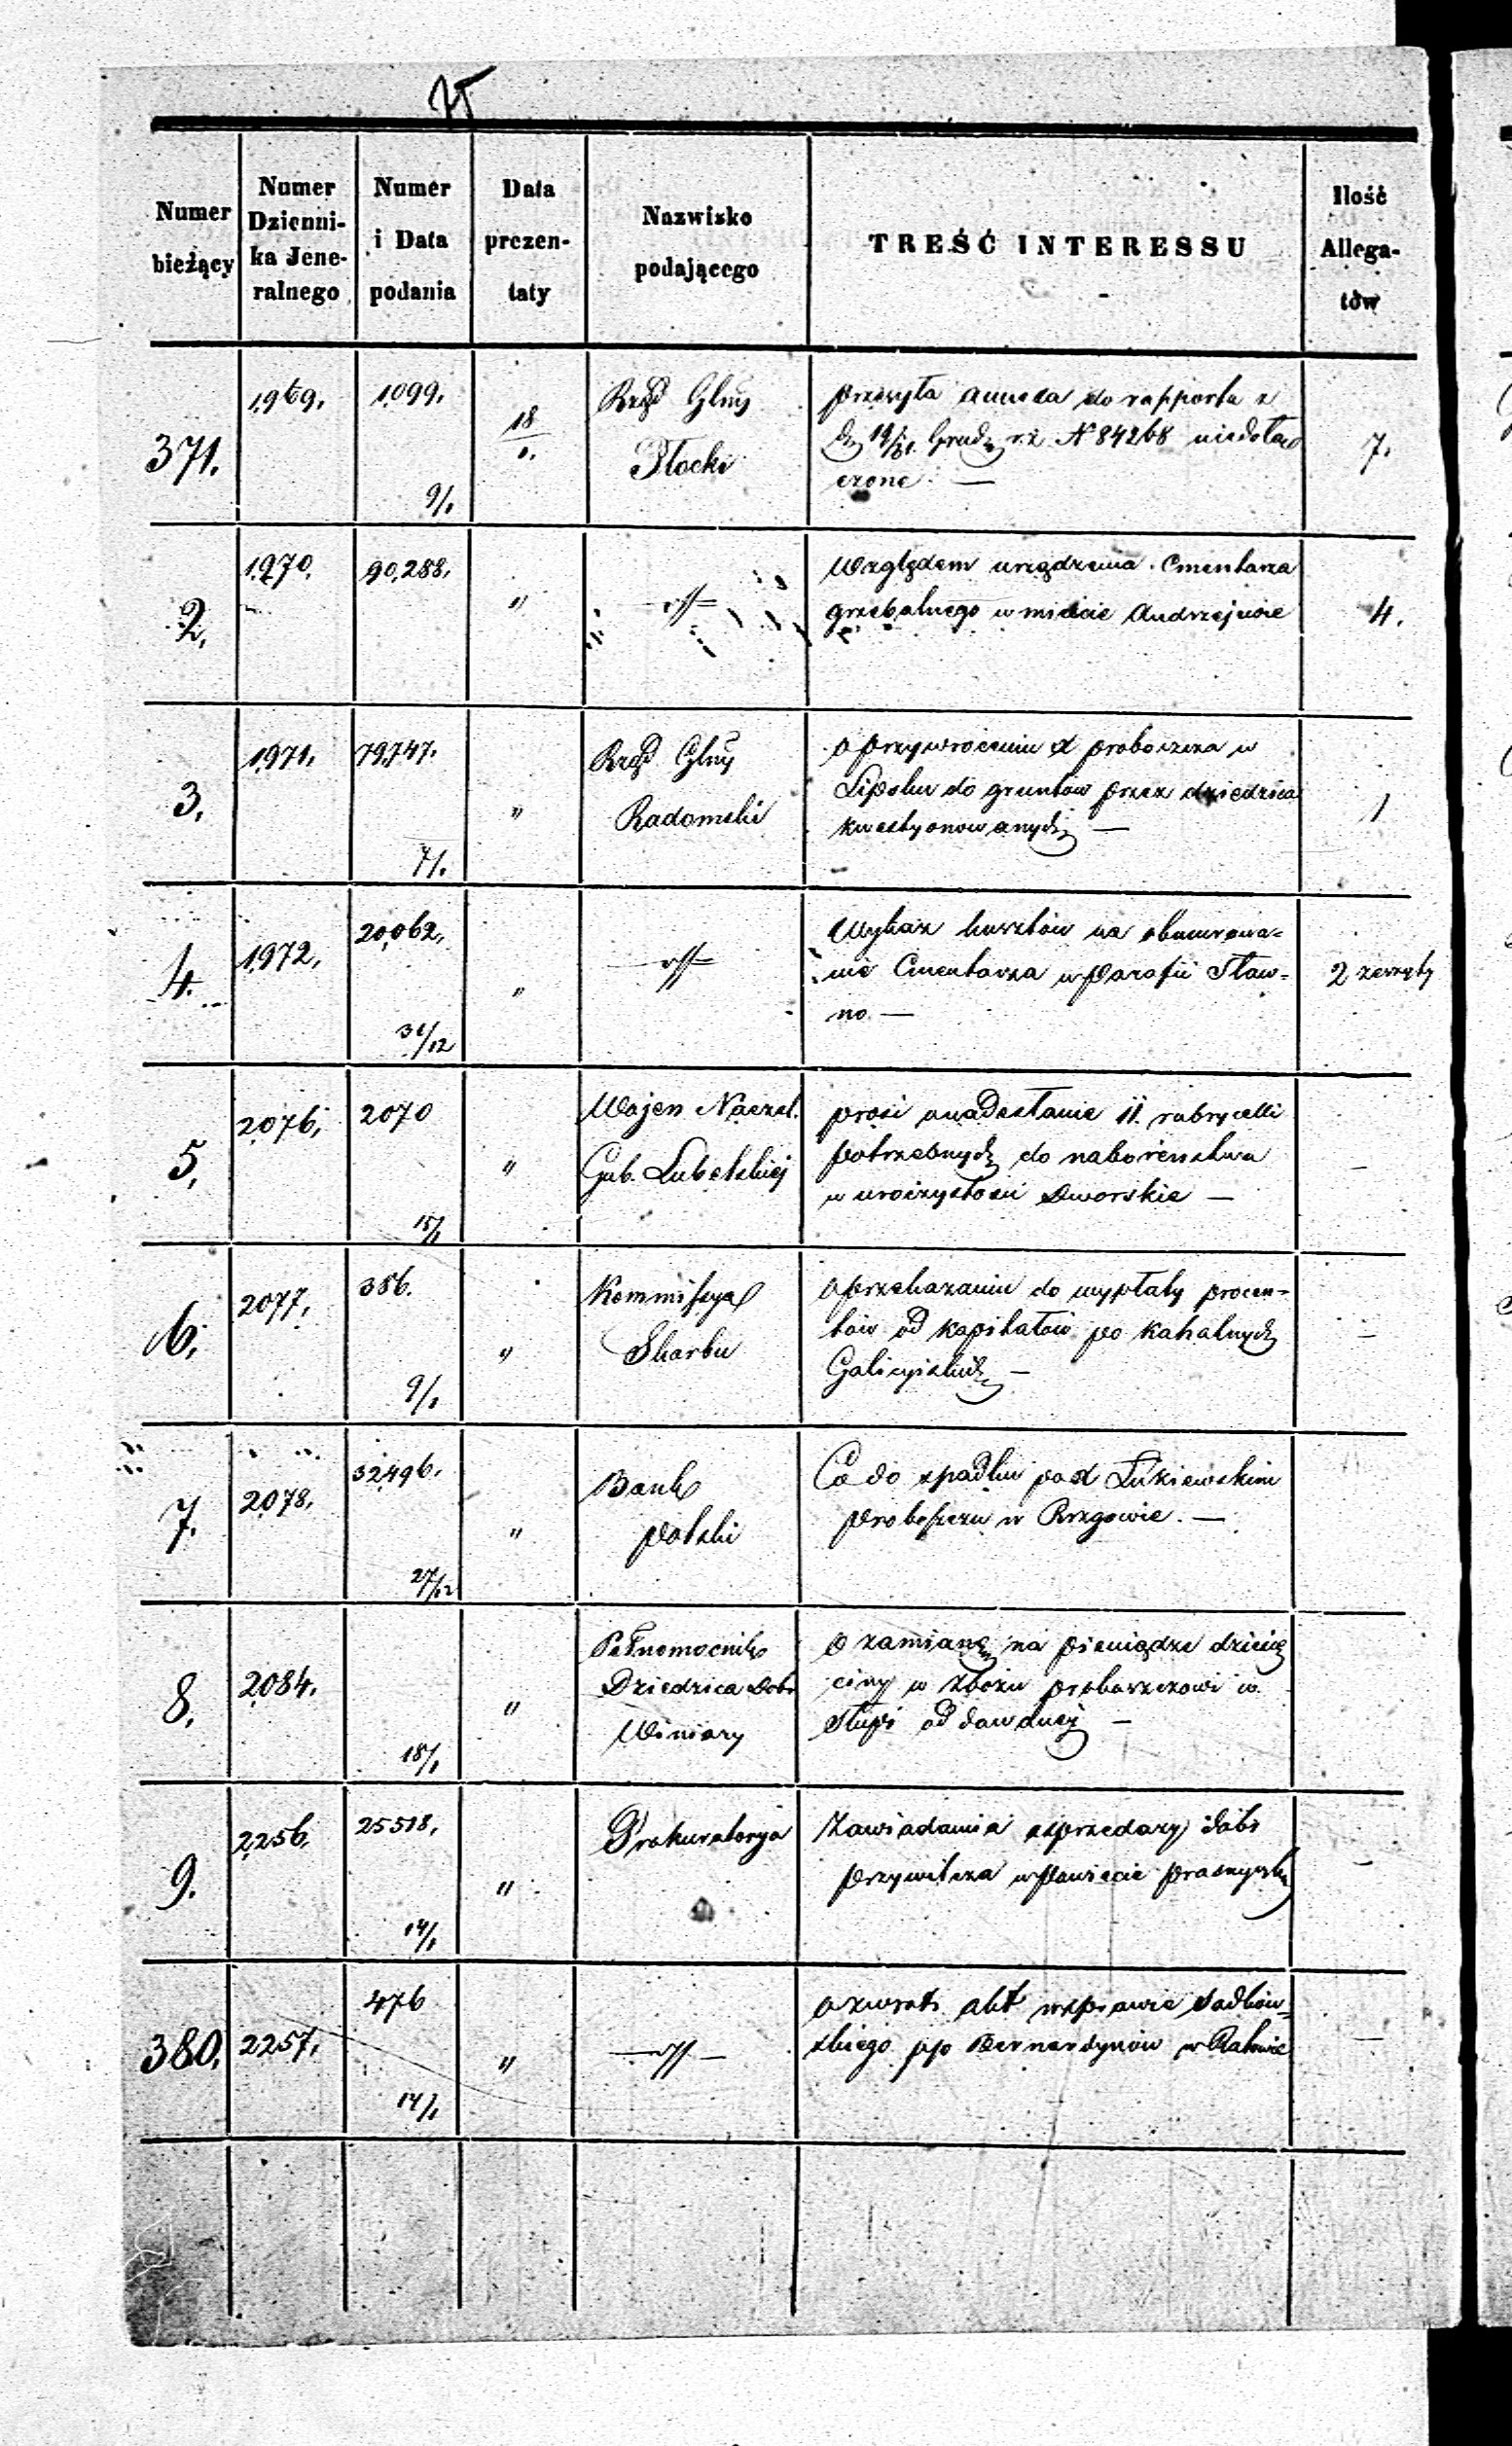 25
Numer bieżący
Numer Dzienni-ka Jene-ralnego
Numer i Data podania
Data prezen-taty
Nazwisko podającego
TREŚĆ INTERESSU
Ilość Allega-tów
371.
1969.
1099.
9/1
18
1.
Rząd Głny
Płocki
przesyła annexa do rapportu z
Grud r.z. N 84268 niedołą
czone. —
7.
2.
1970.
90,288.
"
względem urządzenia Cmentarza
grzebalnego w mieście Andrzejewie
4.
3.
1971.
79,747.
7/1.
"
Rząd Głny
Radomski
o przywróceniu X proboszcza w
Lipsku do gruntów przez dziedzica
kwestyonowanych —
1
4.
1972.
20,062.
31/12
"
Wykaz kosztów na obmurowa=
nie Cmentarza w Parafii Sław=
no. —
2 zeszyty
5.
2076.
2070
15/1
"
Wojen Naczel.
Gub. Lubelskiej
prosi o nadesłanie 11. rubrycelli
potrzebnych do nabożeństwa
w uroczystości Dworskie —
—
6.
2077.
386.
9/1
"
Kommissya
Skarbu
o przekazaniu do wypłaty procen=
tów od kapitałów po kahalnych
Galicyiskich —
—
7.
2078.
32496.
27/12
"
Bank
Polski
Co do spadku po X Łukiewskim
Proboszczu w Rzgowie. —
8.
2084.
18/1
"
Pełnomocnik
Dziedzica Dobr
Winiary
o zamianę na pieniądze dziesię
ciny w zbożu proboszczowi w
Słupi oddawanej —
9.
2256.
25518.
14/1
"
Prokuratorya
Zawiadamia o sprzedaży dóbr
Przywilcza w Powiecie Prasnyskim
—
380.
2257.
476
14/1
"
o zwrot akt w sprawie Sadkow=
skiego p/o Bernardynów w Ratowie
—